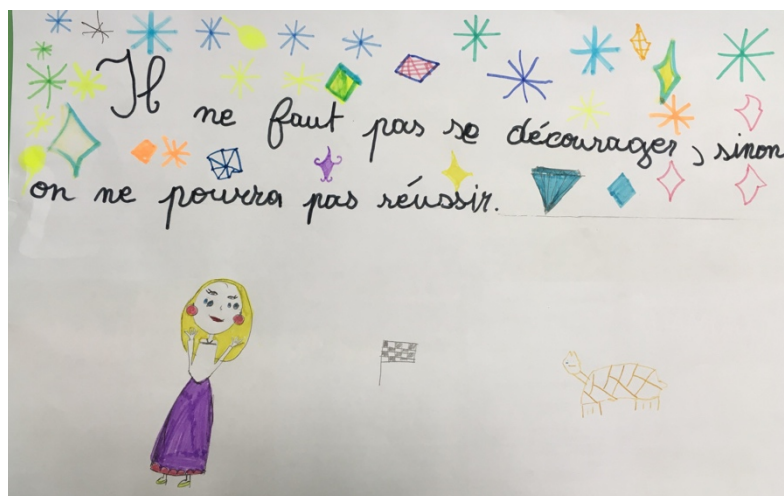 Il ne faut pas se décourager, sinon
on ne pourra pas réussir.